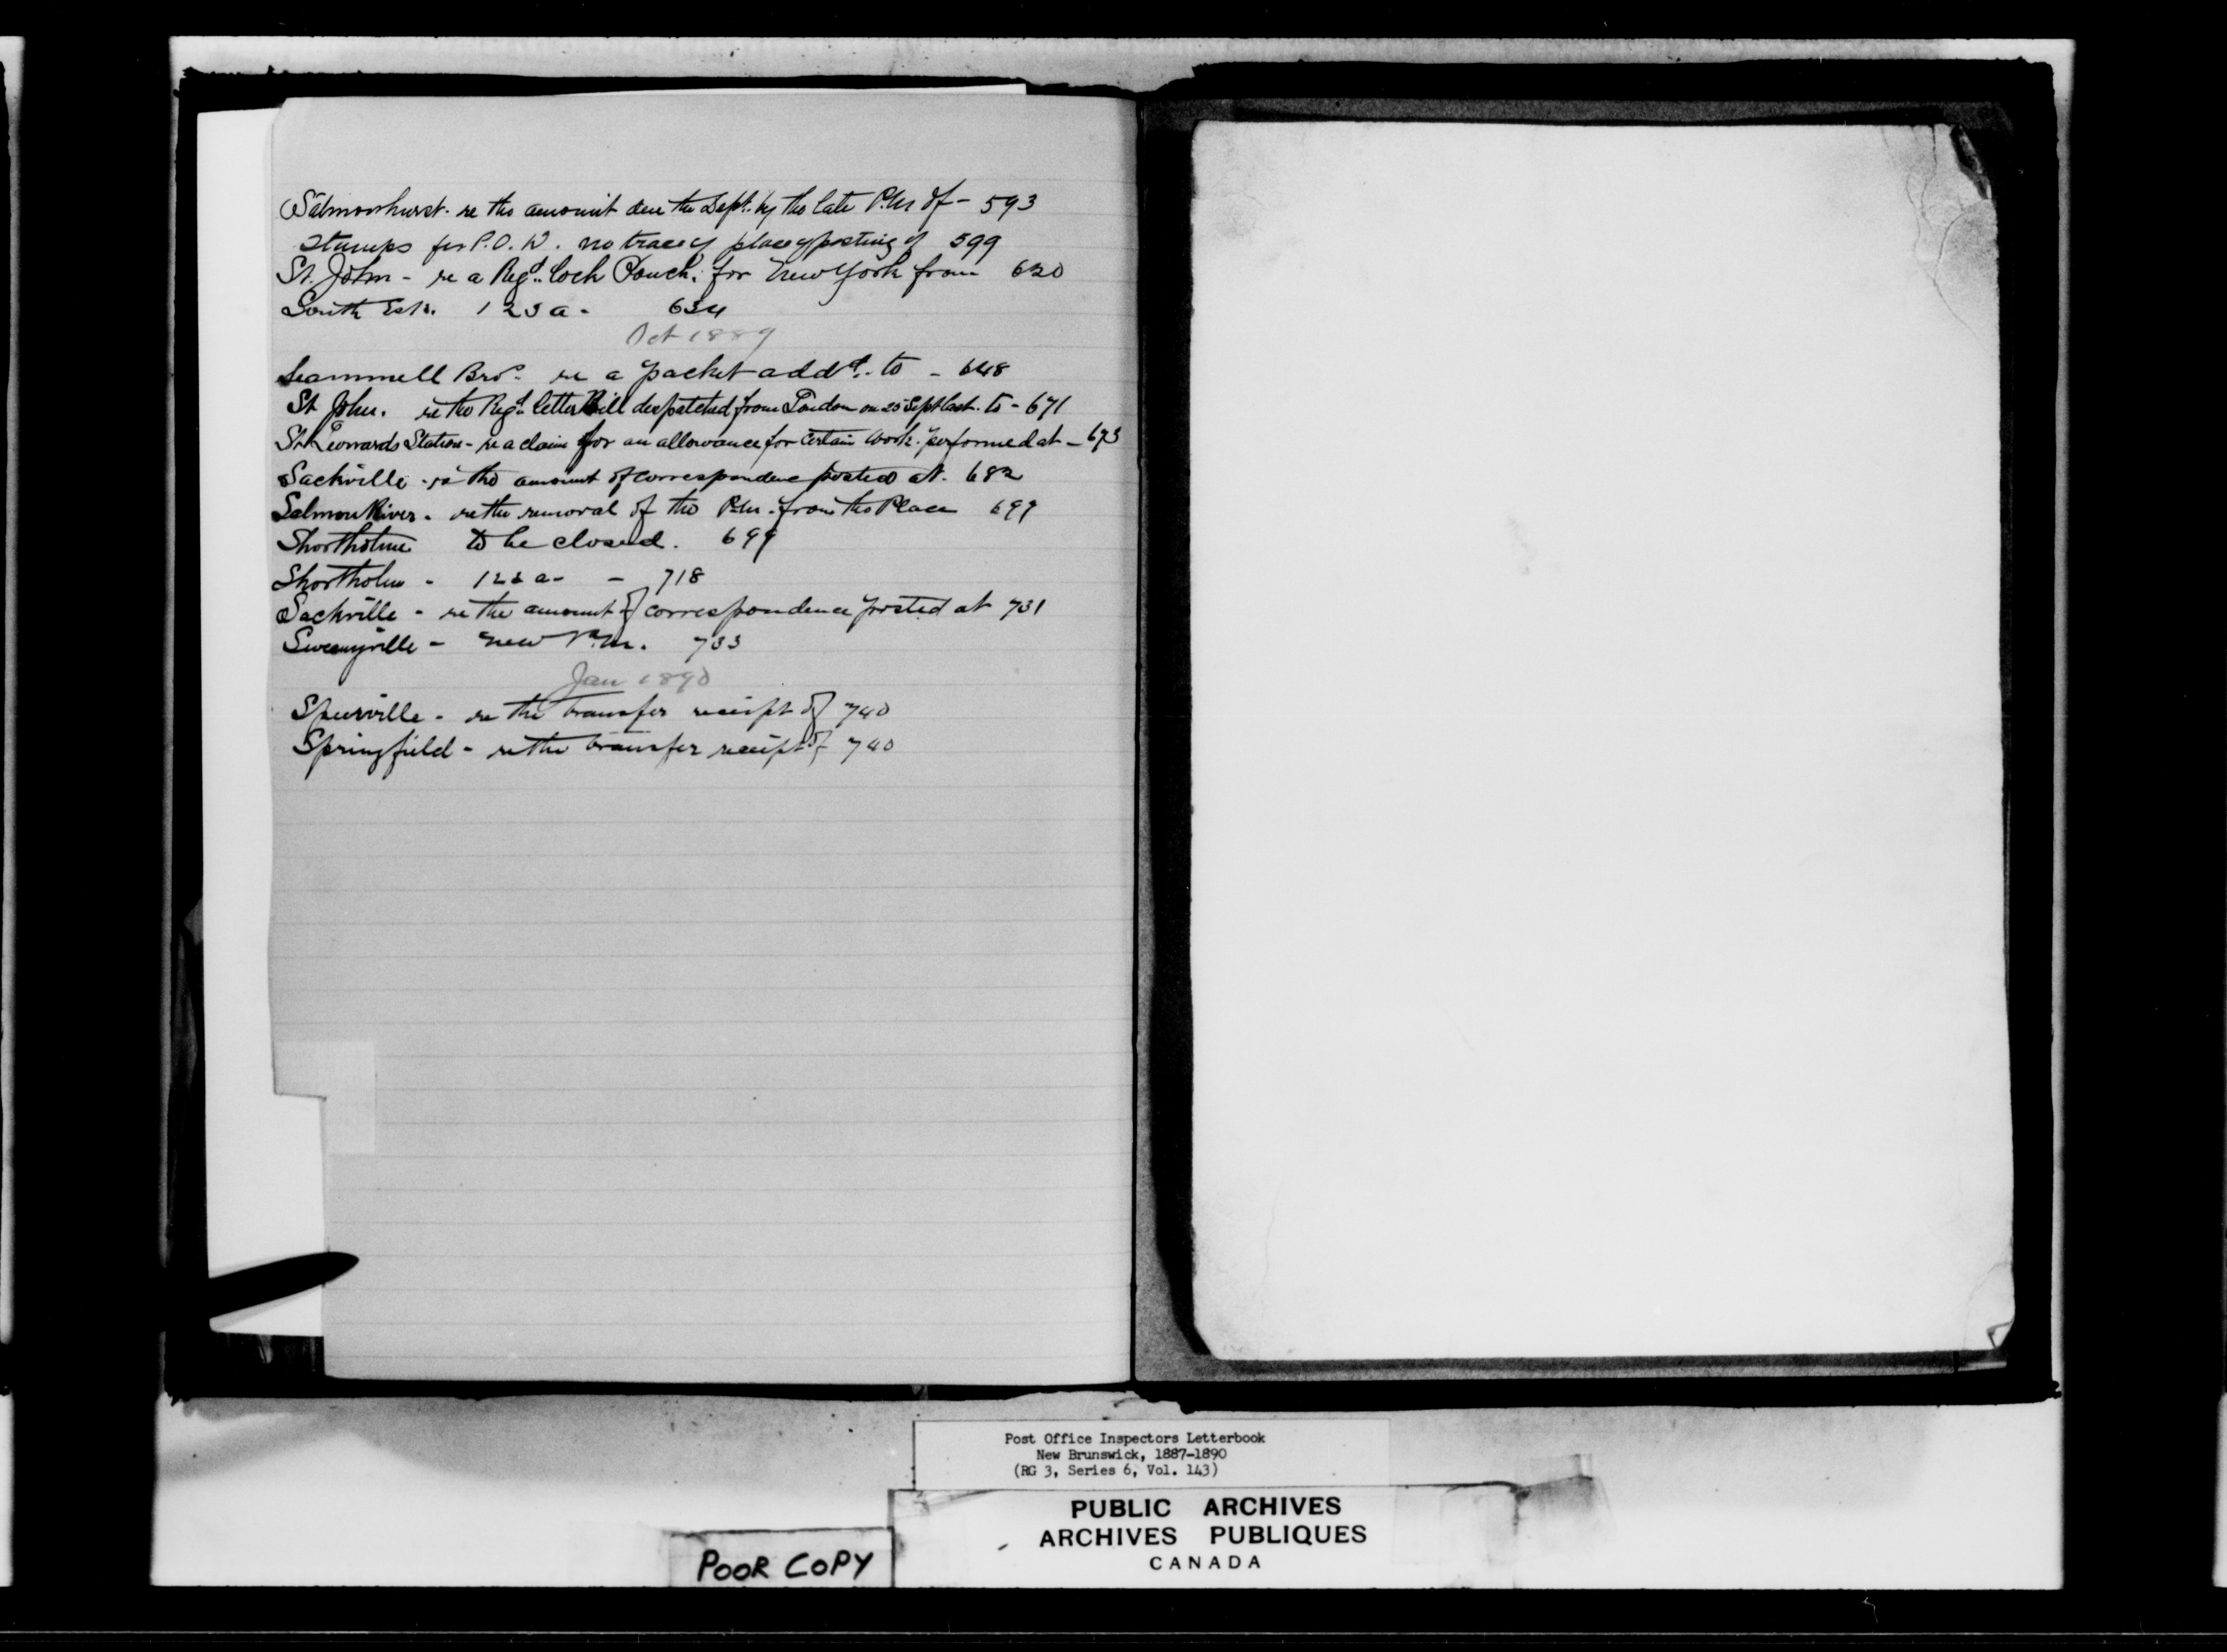 Salmonhurst. re the amount due the Dept. by the late P.M. of - 593
Stamps for P.O.D. no trace of place of posting of 599
St. John - re a Regd. lock Pouch. for New York from 620
South Esk. 123a - 634
Oct 1889
Scammell Bros. re a packet addd. to - 648
St John. re the Regd. letter Bill despatched from London on 25 Sept last. to - 671
St Leonards Station - re a claim for an allowance for certain work. performed at - 673
Sackville - re the amount of correspondence posted at. 682
Salmon River - re the removal of the P.M. from the Place 699
Shortholme to be closed. 699
Shortholm - 123 a - - 718
Sackville - re the amount of correspondence posted at 731
Sweenyville - New P.M. 733
Jan 1890
Spurville - re the transfer receipt of 740
Springfield - re the transfer receipt of 740
Post Office Inspectors Letterbook
New Brunswick, 1887-1890
(RG 3, Series 6, Vol. 143)
PUBLIC ARCHIVES
ARCHIVES PUBLIQUES
CANADA
POOR COPY